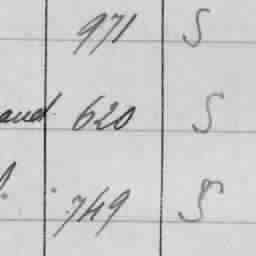 971 S
and 620 S
749 S